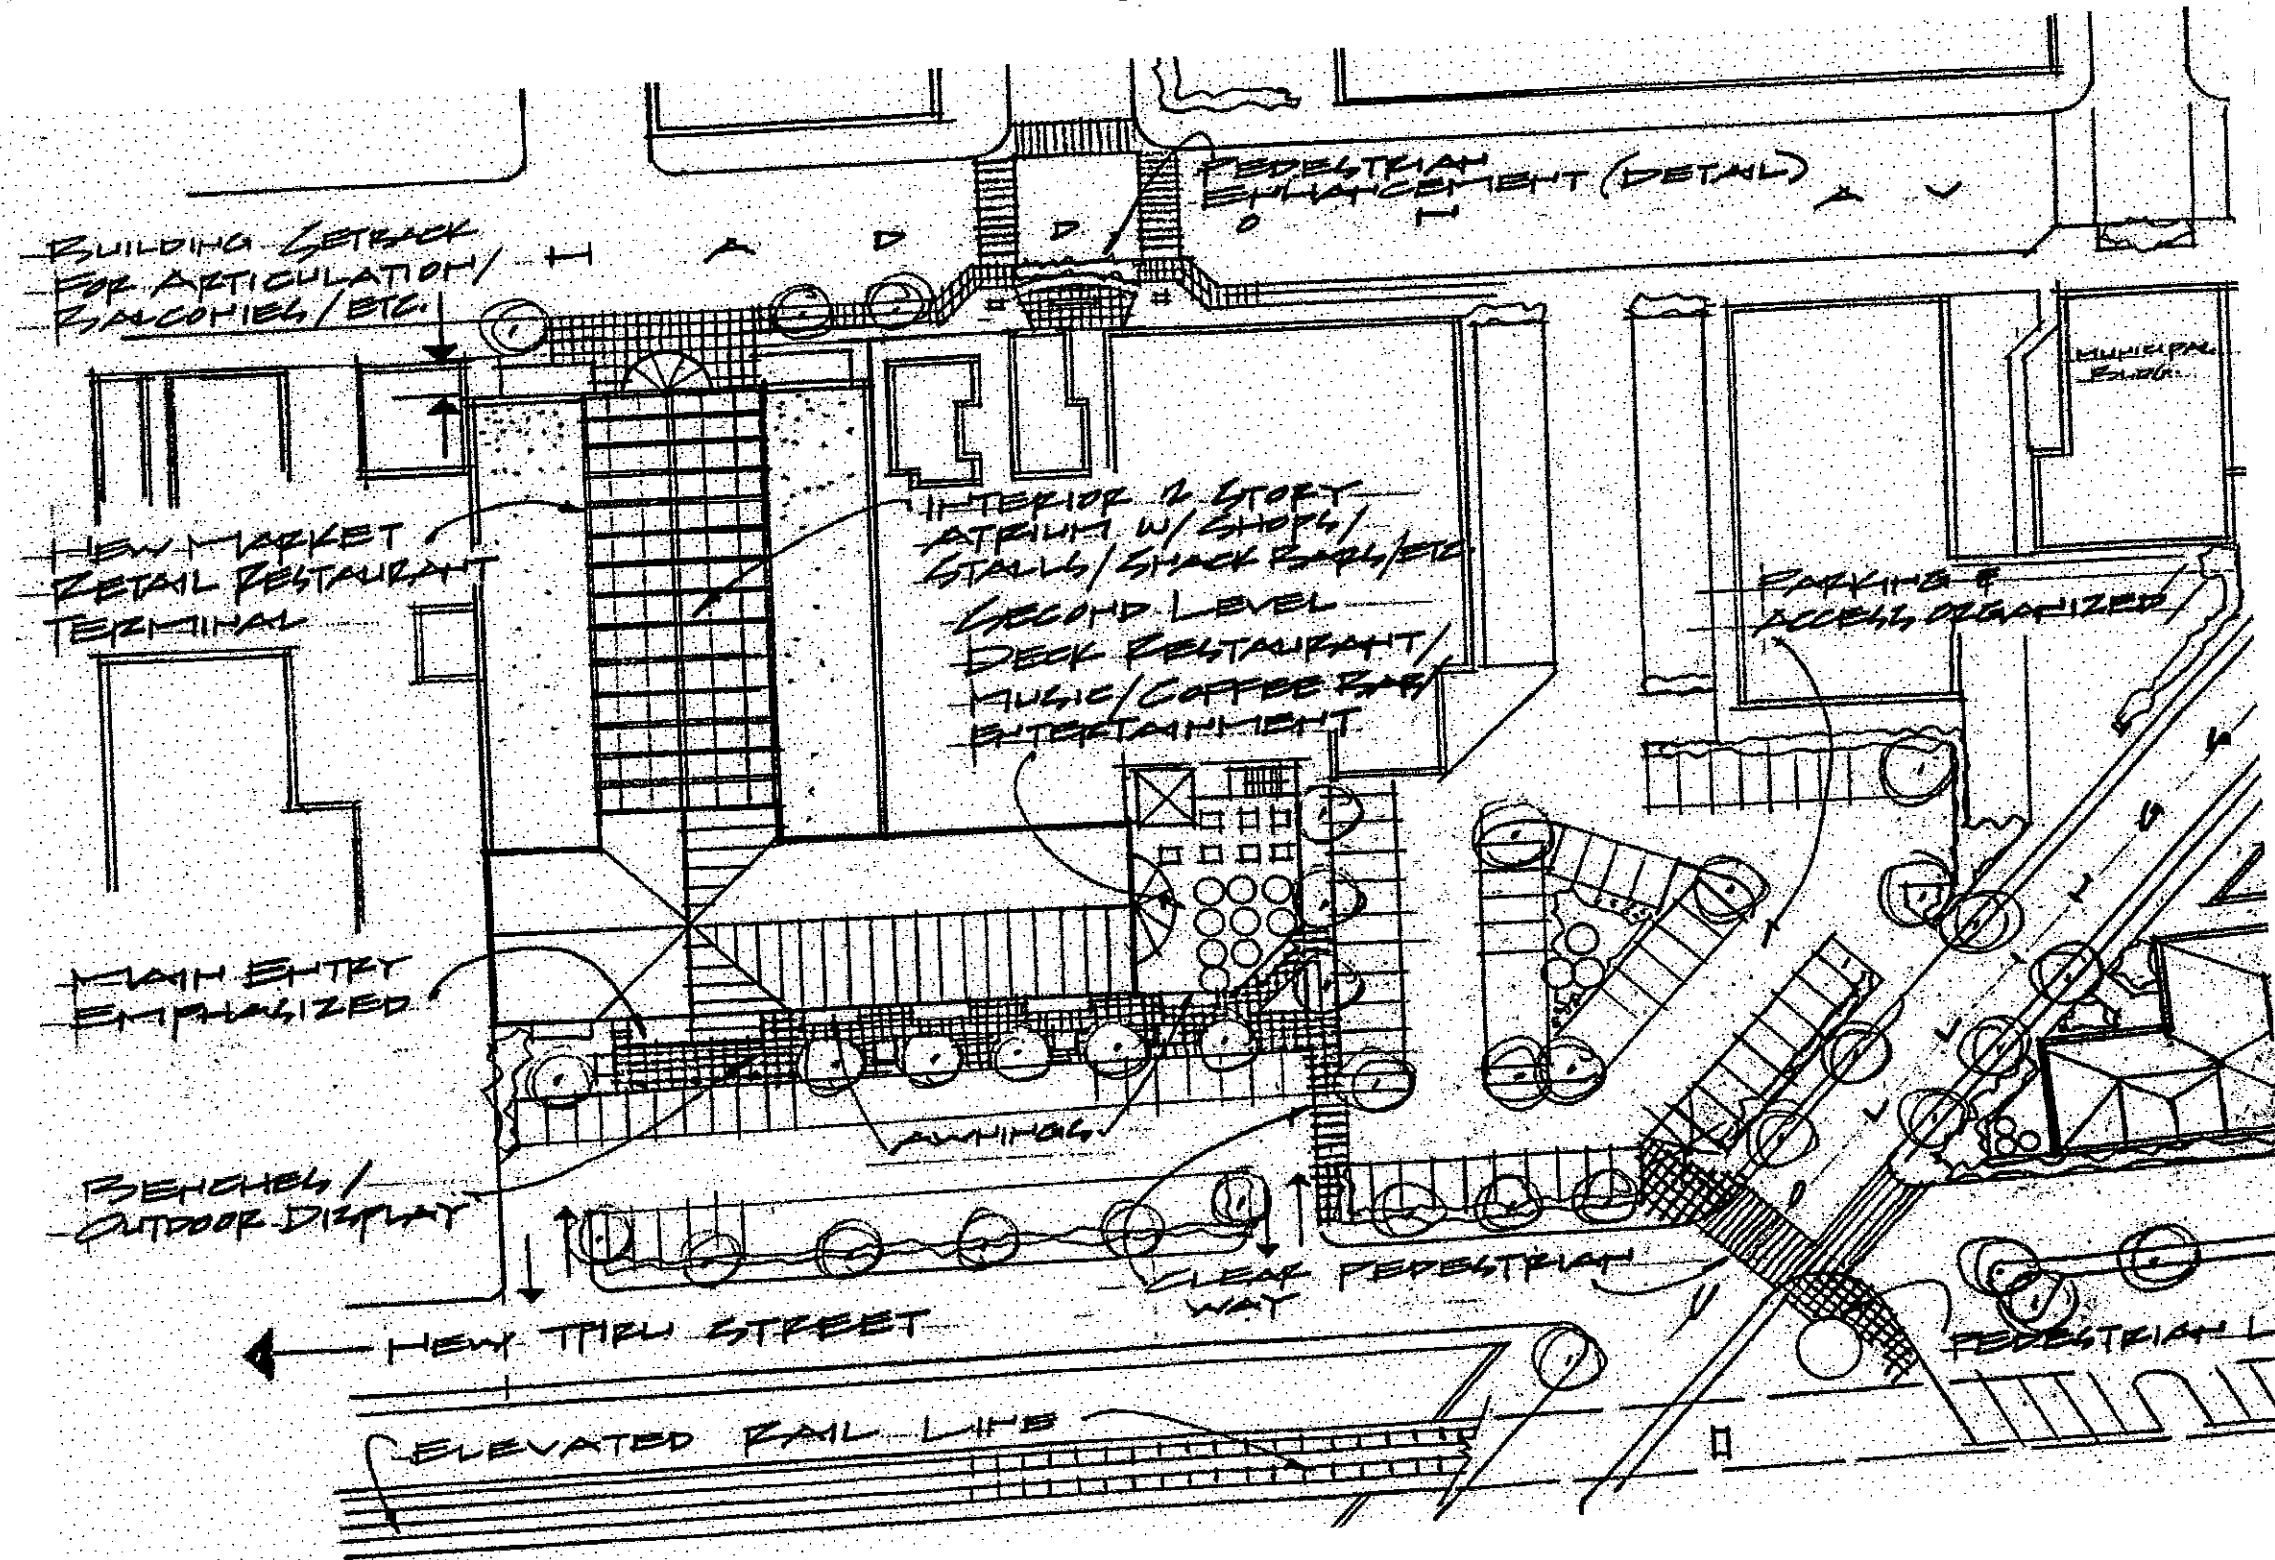 PEDESTRIAN
ENHANCEMENT (DETAIL)
H A D D O N A V
BUILDING SETBACK
FOR ARTICULATION/
BALCONIES/ETC.
MUNICIPAL
BLDG.
NEW MARKET
RETAIL RESTAURANT
TERMINAL
INTERIOR 2 STORY
ATRIUM W/ SHOPS/
STALLS/SNACK BARS/ETC.
SECOND LEVEL
DECK RESTAURANT/
MUSIC/COFFEE BAR/
ENTERTAINMENT
PARKING &
ACCESS ORGANIZED
MAIN ENTRY
EMPHASIZED
AWNINGS
BENCHES/
OUTDOOR DISPLAY
CLEAR PEDESTRIAN
WAY
NEW THRU STREET
PEDESTRIAN L
ELEVATED RAIL LINE